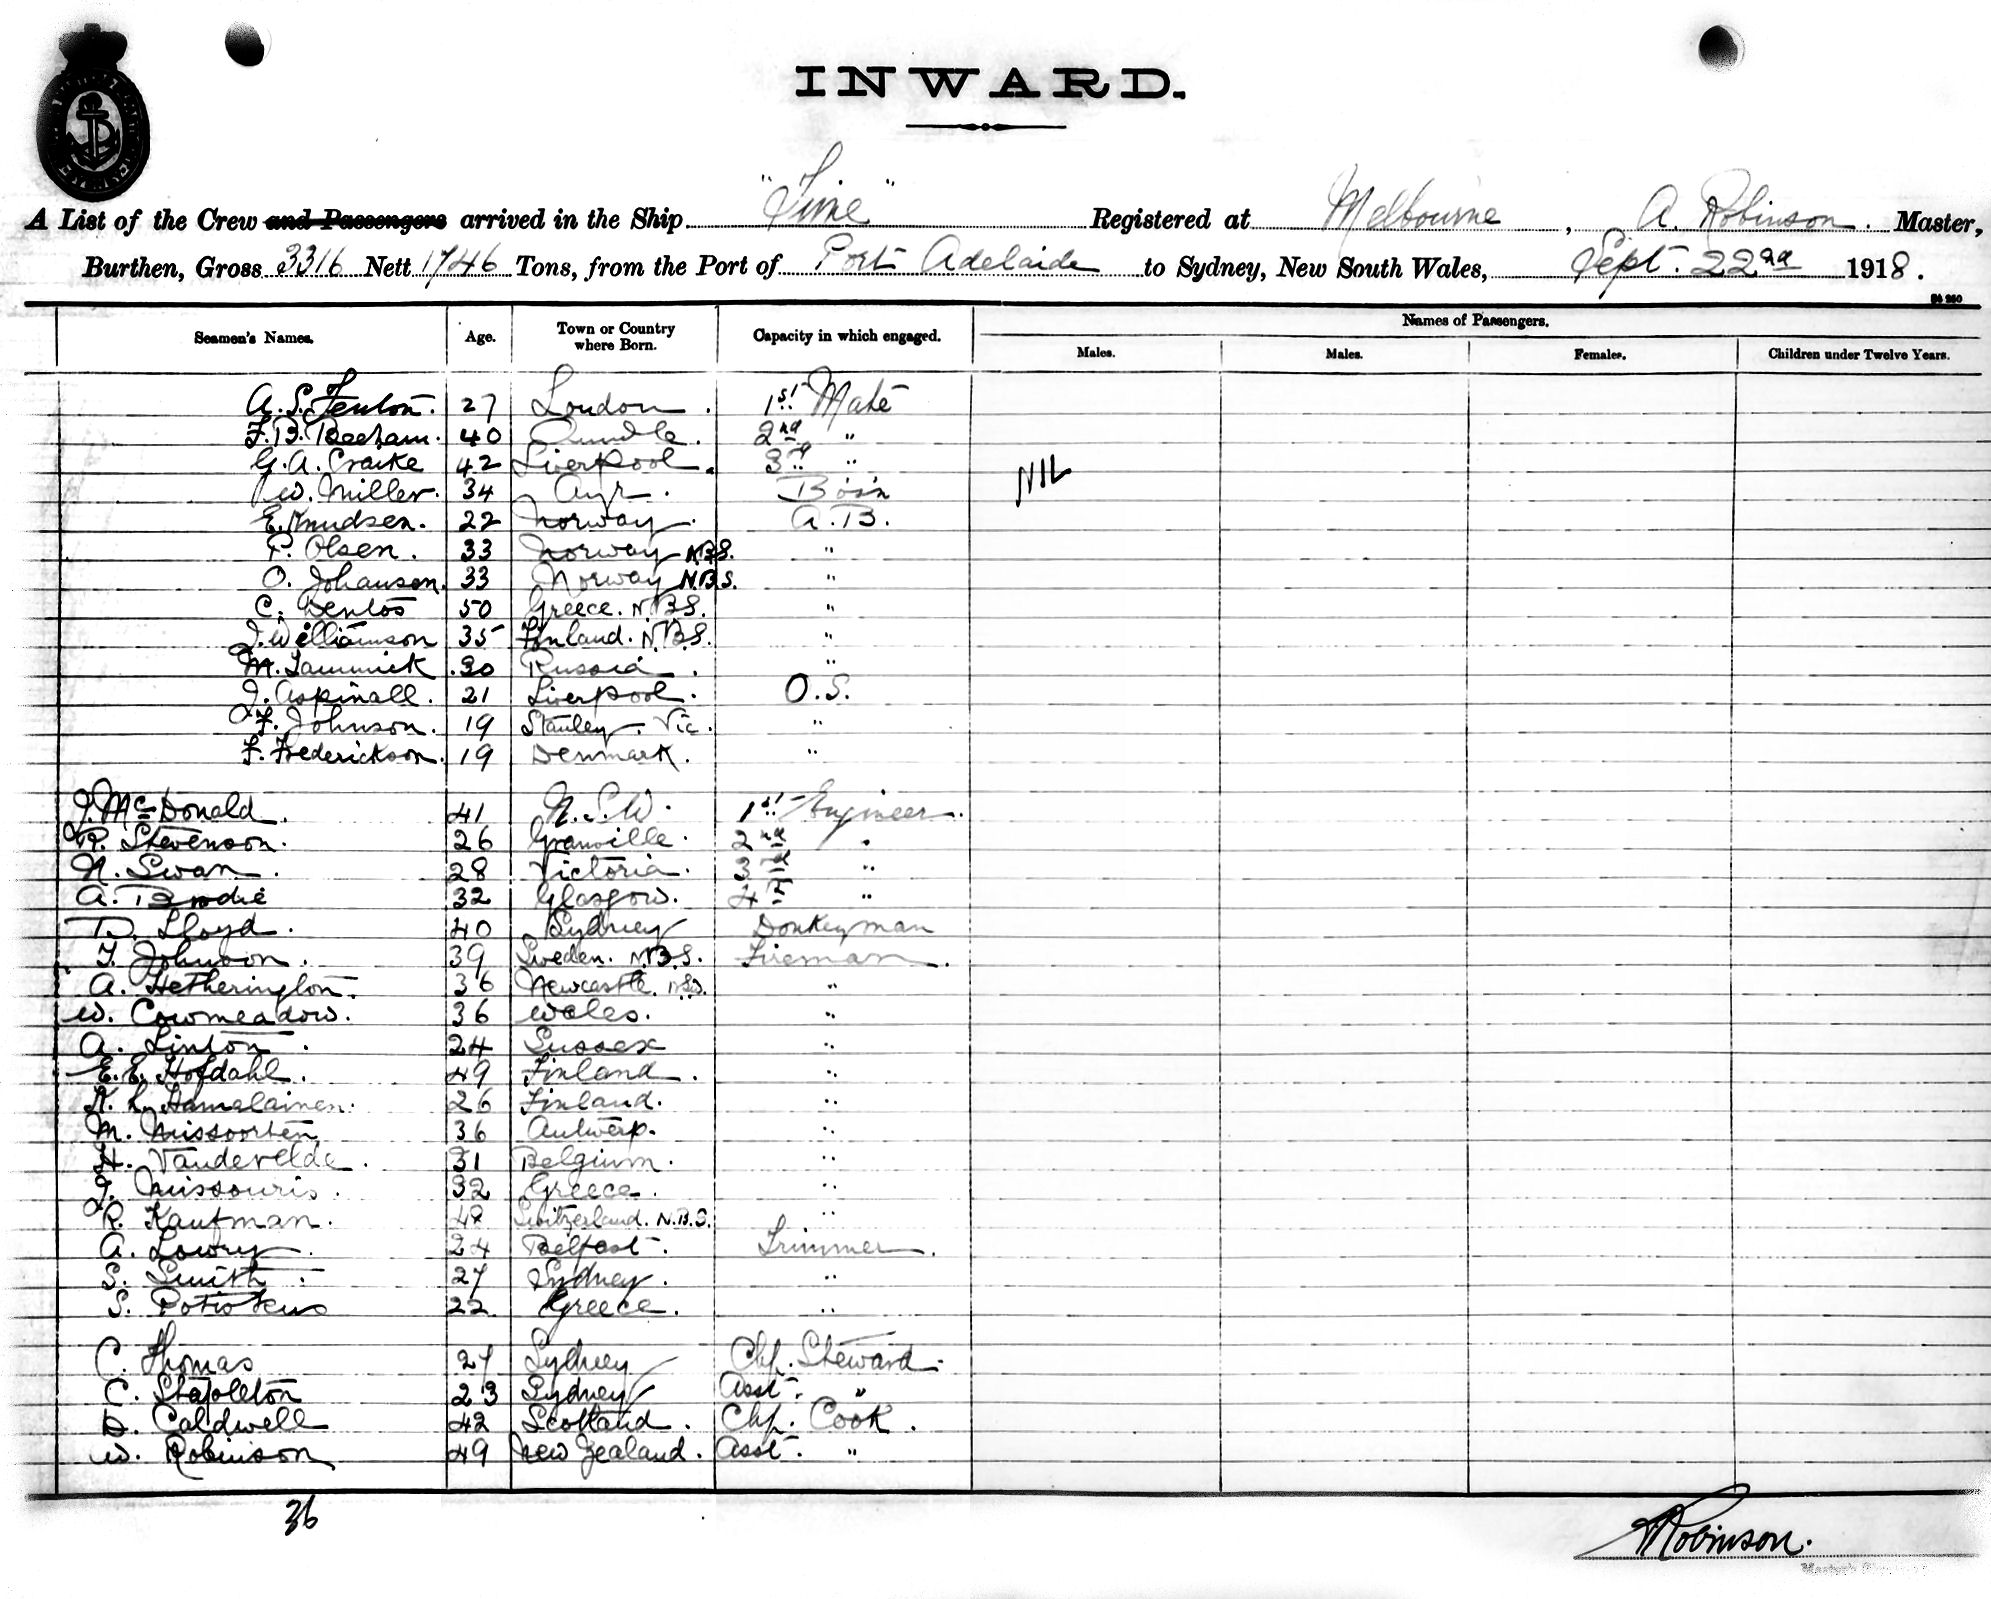 INWARD.
A List of the Crew and Passengers arrived in the Ship "Time" Registered at Melbourne, A. Robinson. Master,
Burthen, Gross 3316 Nett 1746 Tons, from the Port of Port Adelaide to Sydney, New South Wales, Sept. 22nd 1918.
Seamen's Names. Age. Town or Country where Born. Capacity in which engaged. Names of Passengers.
Males. Males. Females. Children under Twelve Years.
A. S. Fenton. 27 London. 1st Mate
F. B. Beeham. 40 2nd "
G. A. Craike 42 Liverpool. 3rd "
W. Miller. 34 Ayr. Bosn NIL
E. Knudsen. 22 Norway. A.B.
P. Olsen. 33 Norway N.B.S. "
O. Johanson. 33 Norway N.B.S. "
C. 50 Greece. N.B.S. "
J. Williamson 35 Finland. N.B.S. "
M. Tammick 30 Russia. "
J. Aspinall. 21 Liverpool. O.S.
F. Johnson. 19 Stanley. Vic. "
F. Frederickson. 19 Denmark. "
J. McDonald. 41 N.S.W. 1st Engineer.
R. Stevenson. 26 Granville. 2nd "
N. Swan. 28 Victoria. 3rd "
A. Brodie 32 Glasgow. 4th "
D. Lloyd. 40 Sydney Donkeyman
F. Johnson. 39 Sweden. N.B.S. Fireman.
A. Hetherington. 36 Newcastle. NSW. "
W. Cowmeadow. 36 Wales. "
A. Linton. 24 Sussex "
E. E. Hofdahl. 49 Finland. "
K. L. Hamalainen. 26 Finland. "
M. Missoorten 36 Antwerp. "
H. Vandervelde. 31 Belgium. "
J. Missouris. 32 Greece. "
R. Kaufman. 48 Switzerland. N.B.S. "
A. Lowry. 24 Belfast. Trimmer.
S. Smith. 27 Sydney. "
S. 22 Greece. "
C. Thomas 27 Sydney Chf. Steward.
C. Stapleton 23 Sydney Asst. "
D. Caldwell 42 Scotland. Chf. Cook.
W. Robinson 49 New Zealand. Asst. "
36
A Robinson.